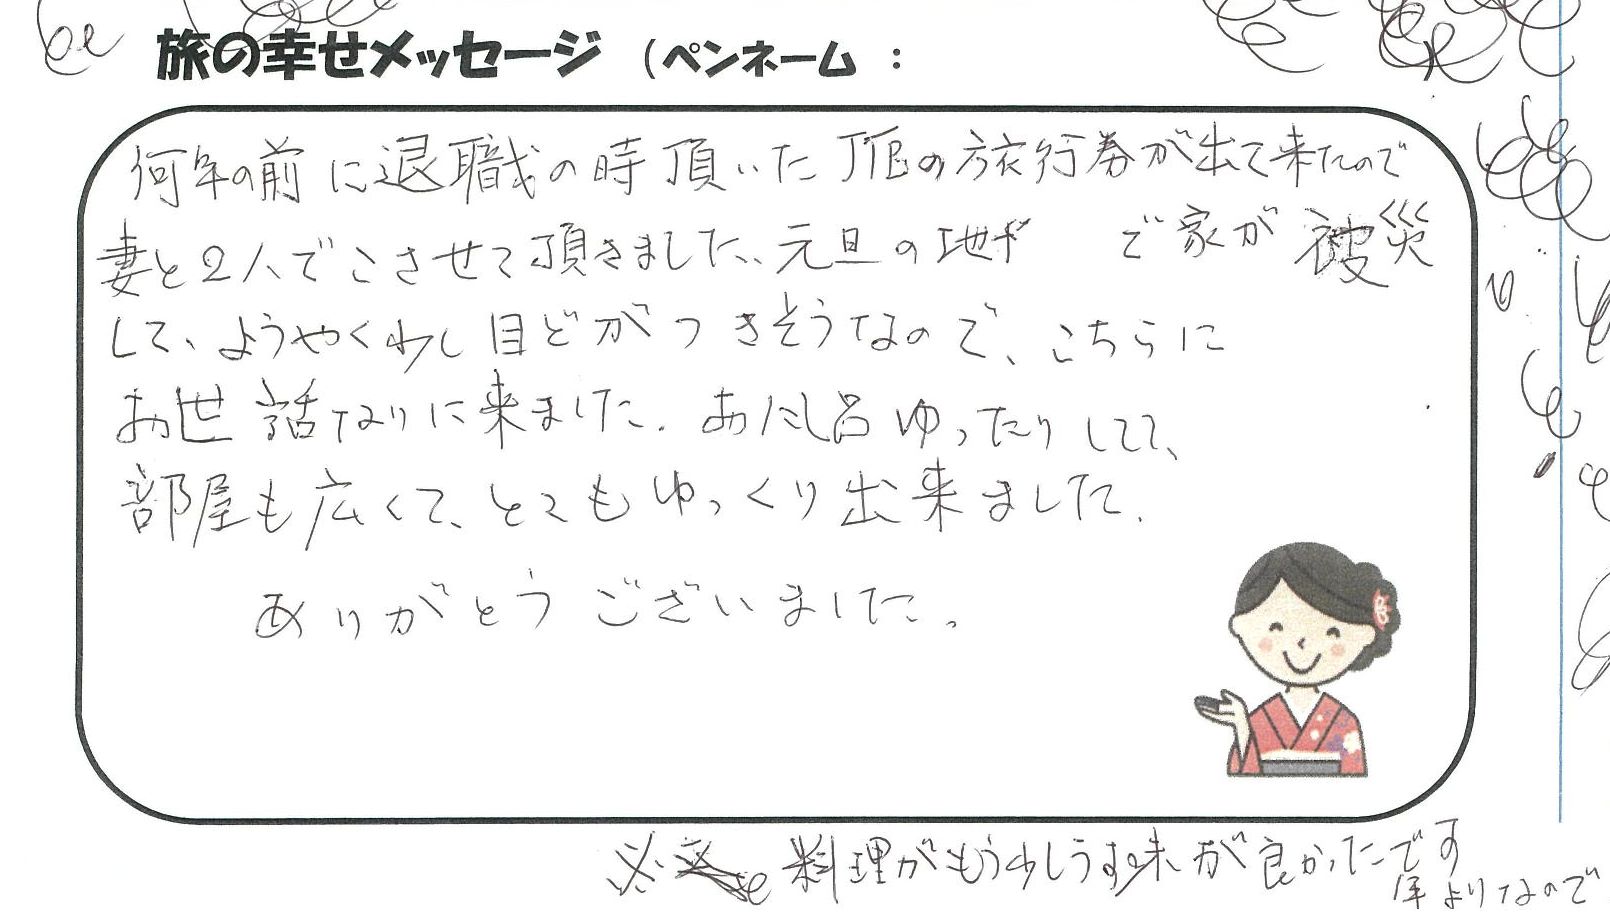 旅の幸せメッセージ （ペンネーム ：
何年の前に退職の時頂いたJTBの旅行券が出て来たので
妻と2人でこさせて頂きました、元旦の地 で家が被災
して、ようやく少し目どがつきそうなので、こちらに
お世話なりに来ました。おふろ ゆったりしてて、
部屋も広くて、とてもゆっくり出来ました。
ありがとうございました。
※ 料理がもう少しうす味が良かったです
年よりなので